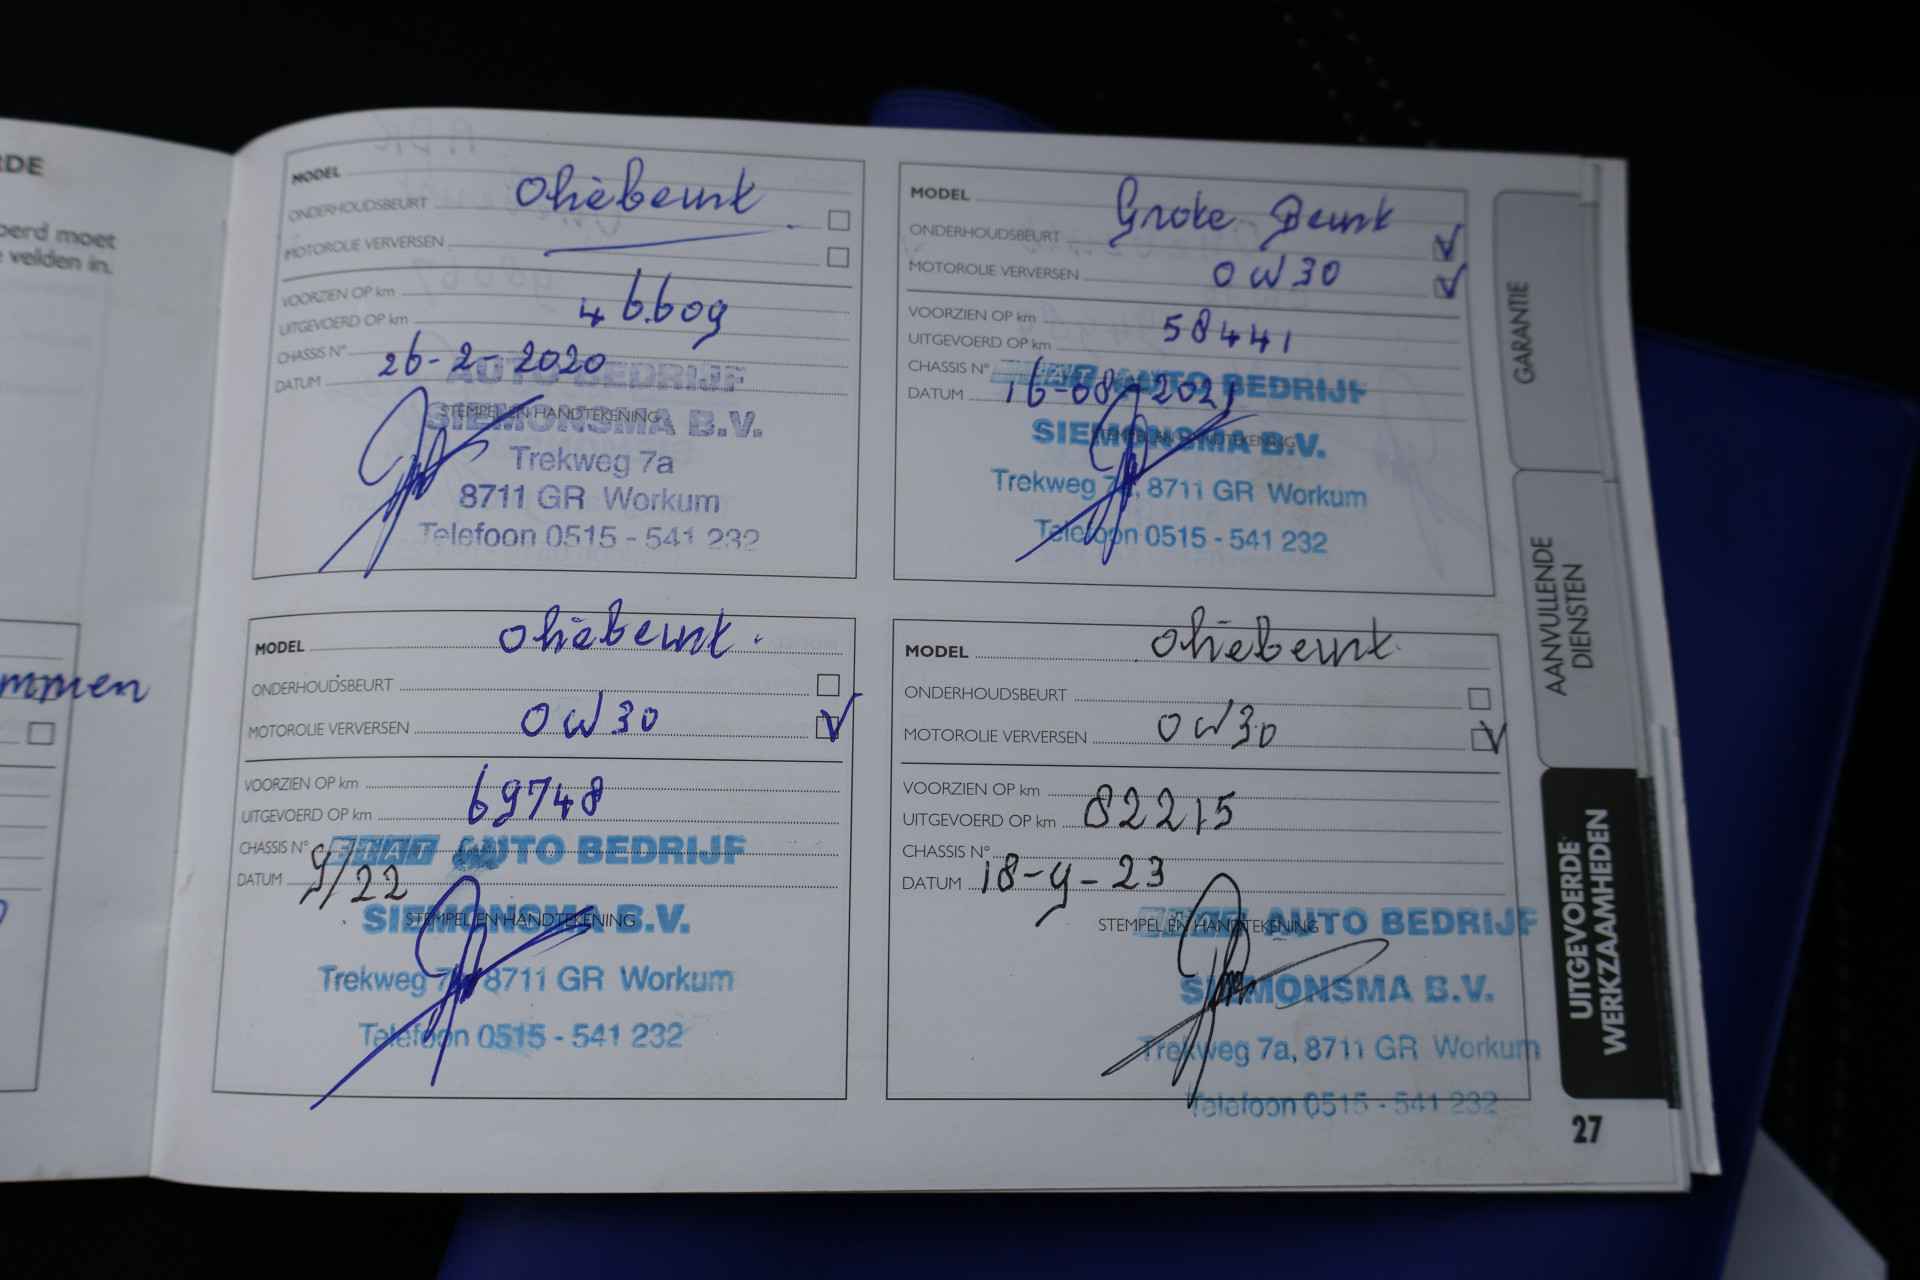 RDE
oerd moet
e velden in.
mmen
MODEL
Oliebeurt
ONDERHOUDSBEURT
MOTOROLIE VERVERSEN
VOORZIEN OP km
46.609
UITGEVOERD OP km
CHASSIS N°
26-2-2020
DATUM
STEMPEL EN HANDTEKENING
AUTO BEDRIJF
SIEMONSMA B.V.
Trekweg 7a
8711 GR Workum
Telefoon 0515 - 541 232
MODEL
Grote Beurt
ONDERHOUDSBEURT
MOTOROLIE VERVERSEN 0W30
VOORZIEN OP km
58441
UITGEVOERD OP km
CHASSIS N°
DATUM 16-08-2021
STEMPEL EN HANDTEKENING
FIAT AUTO BEDRIJF
SIEMONSMA B.V.
Trekweg 7a, 8711 GR Workum
Telefoon 0515 - 541 232
MODEL Oliebeurt.
ONDERHOUDSBEURT
MOTOROLIE VERVERSEN 0W30
VOORZIEN OP km
69748
UITGEVOERD OP km
CHASSIS N°
DATUM 9/22
STEMPEL EN HANDTEKENING
FIAT AUTO BEDRIJF
SIEMONSMA B.V.
Trekweg 7a, 8711 GR Workum
Telefoon 0515 - 541 232
MODEL Oliebeurt.
ONDERHOUDSBEURT
MOTOROLIE VERVERSEN 0W30
VOORZIEN OP km
UITGEVOERD OP km 82215
CHASSIS N°
DATUM 18-9-23
STEMPEL EN HANDTEKENING
FIAT AUTO BEDRIJF
SIEMONSMA B.V.
Trekweg 7a, 8711 GR Workum
Telefoon 0515 - 541 232
GARANTIE
AANVULLENDE
DIENSTEN
UITGEVOERDE
WERKZAAMHEDEN
27